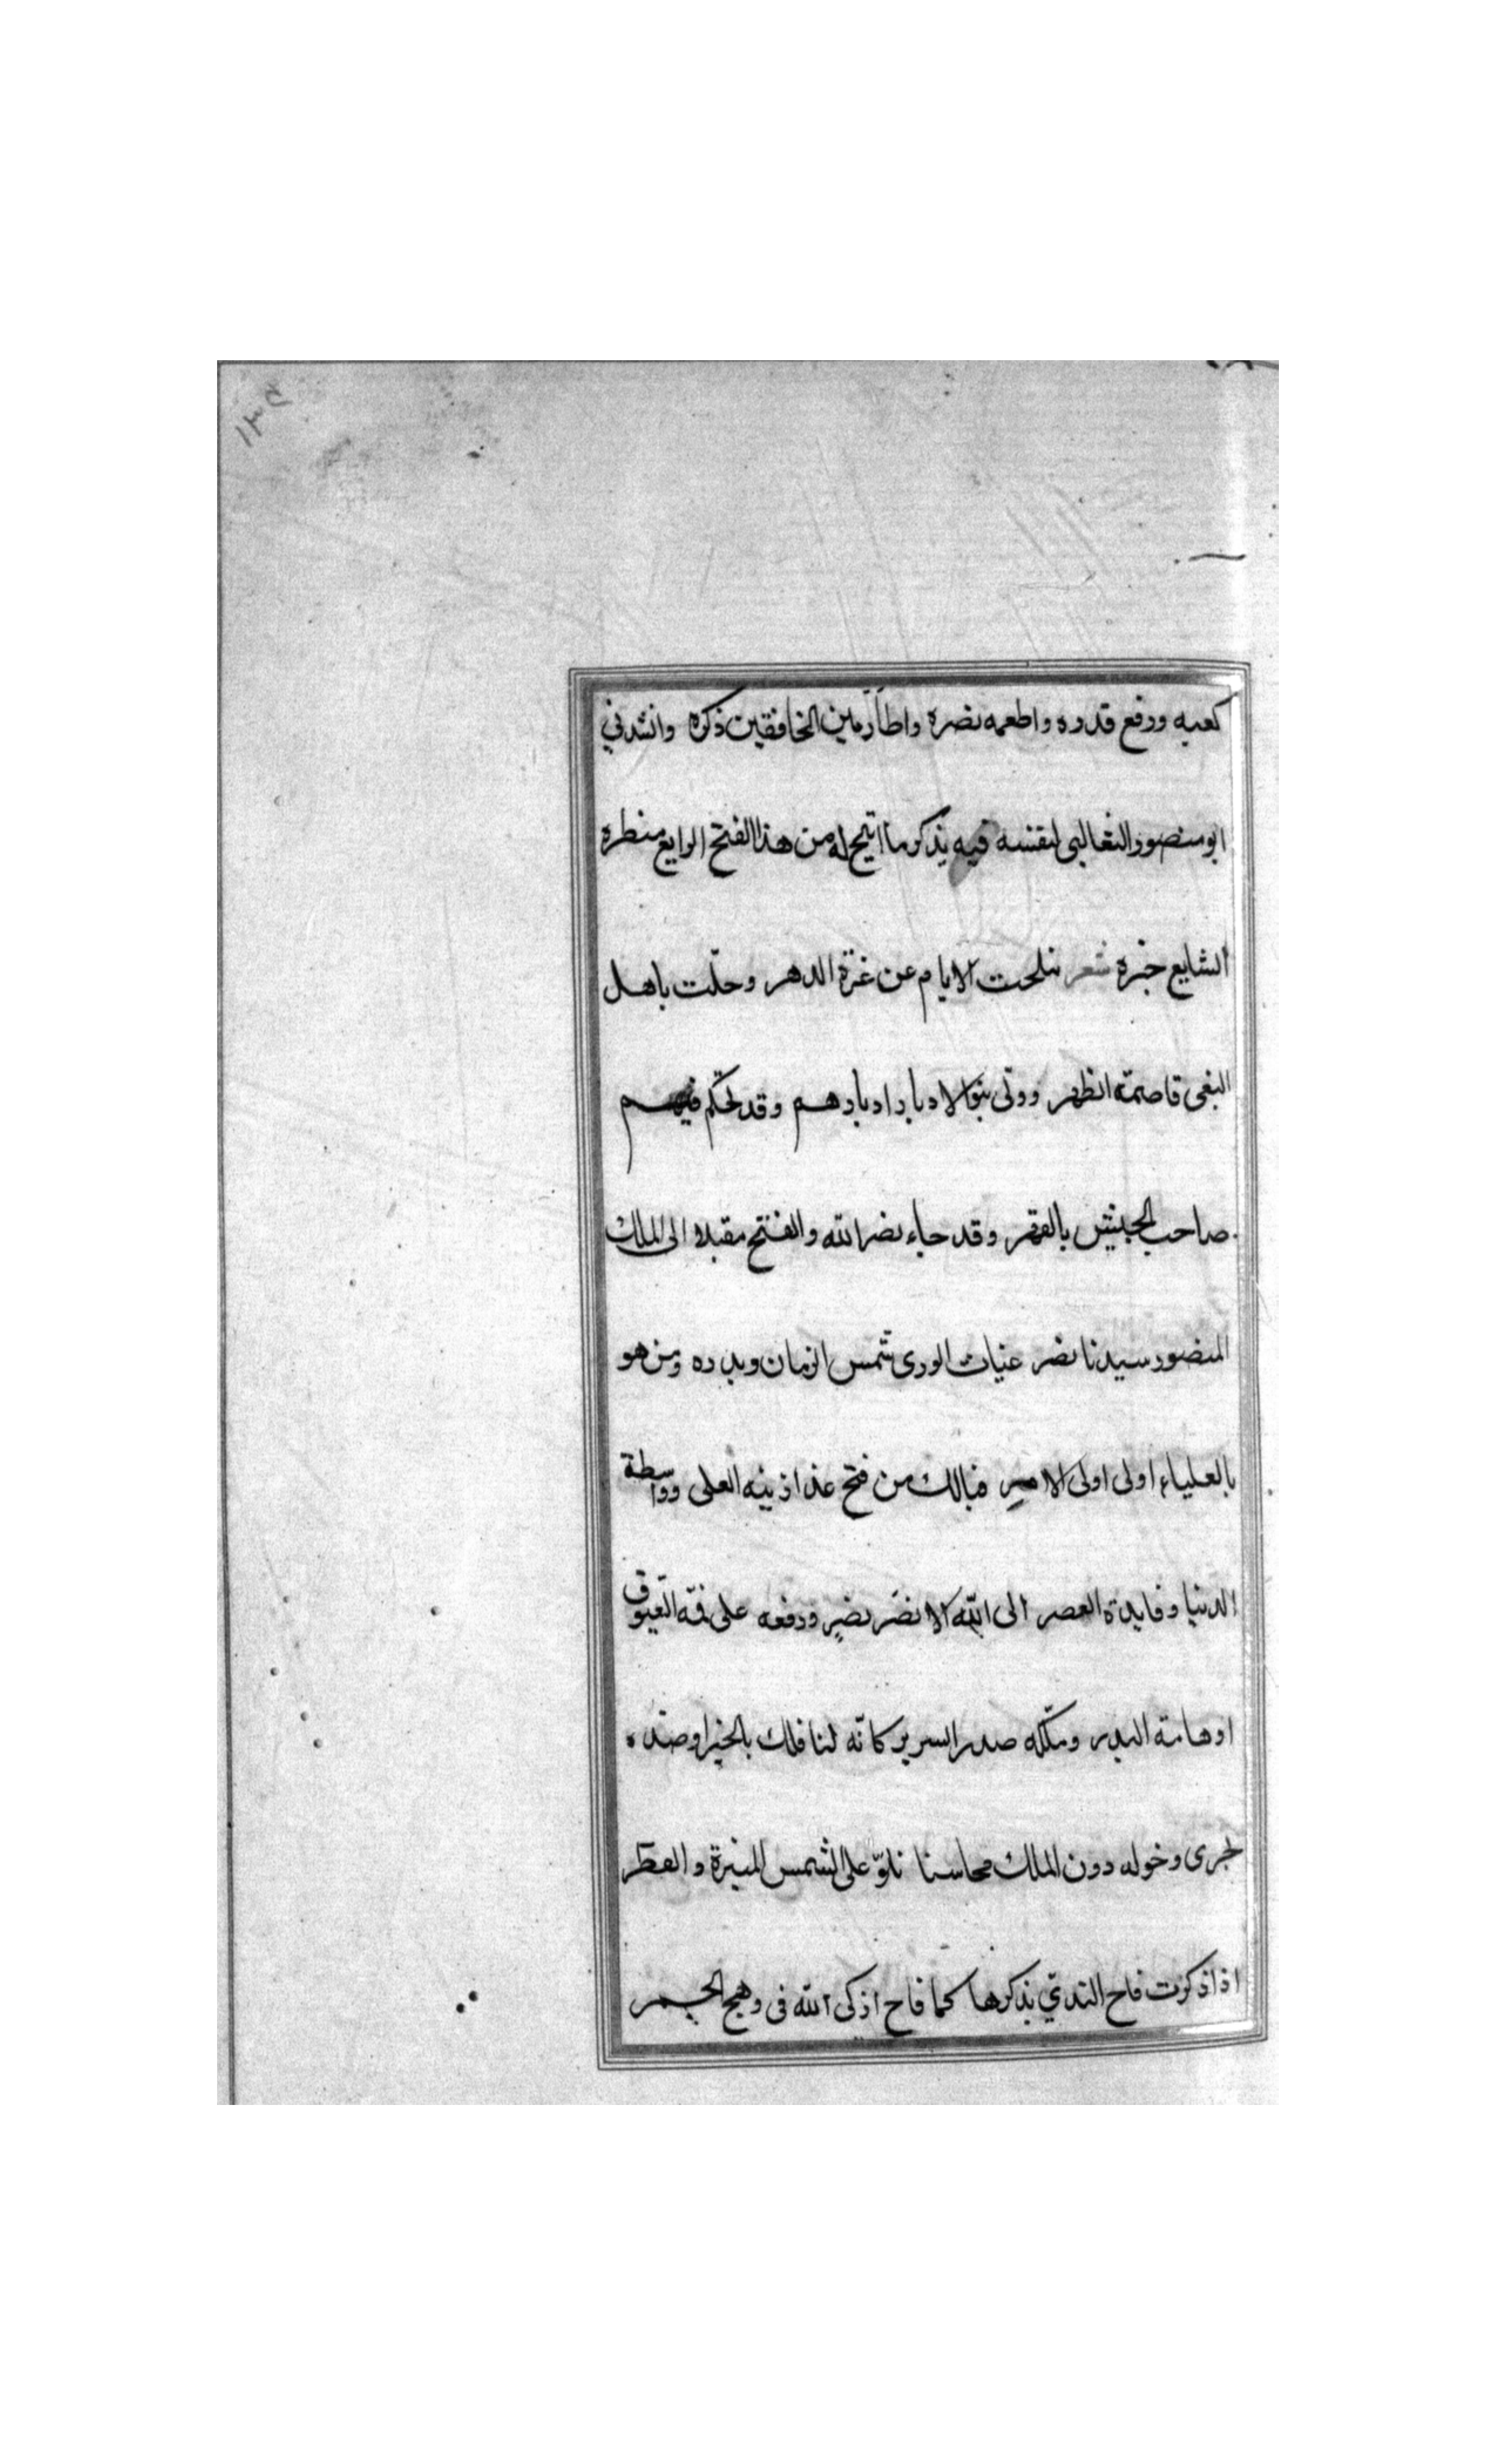 كعبه ورفع قدره واطعمه نصره واطار مابين الخافقين ذكره وانشدني
ابو منصور الثعالبى لنفسه فيه يذكر ما اتيح له من هذا الفتح الرايع منظره
الشايع خبره شعر تبلجت الايام عن غرّة الدهر وحلّت باهل
البغى قاصمة الظهر وولّى بنو الادبار ادبارهم وقد تحكّم فيهم
صاحب الجيش بالقهر وقد جاء نصر الله والفتح مقبلا الى الملك
المنصور سيدنا نصر غياث الورى شمس الزمان وبدره ومن هو
بالعلياء اولى اولى الامر فيالك من فتح غدا زينه العلى وواسطة
الدنيا وفايدة العصر الى الله الا نصر نصرٍ ورفعه على قمّه العيّوق
او هامة البدر وملّكه صدر السرير كانّه لنا فلك بالخير او ضدّه
يجرى وخوله دون الملوك محاسنا على الشمس المنيرة والقطر
اذا ذكرت فاح الندىّ بذكرها كما فاح اذكى الله فى وهج الجمر